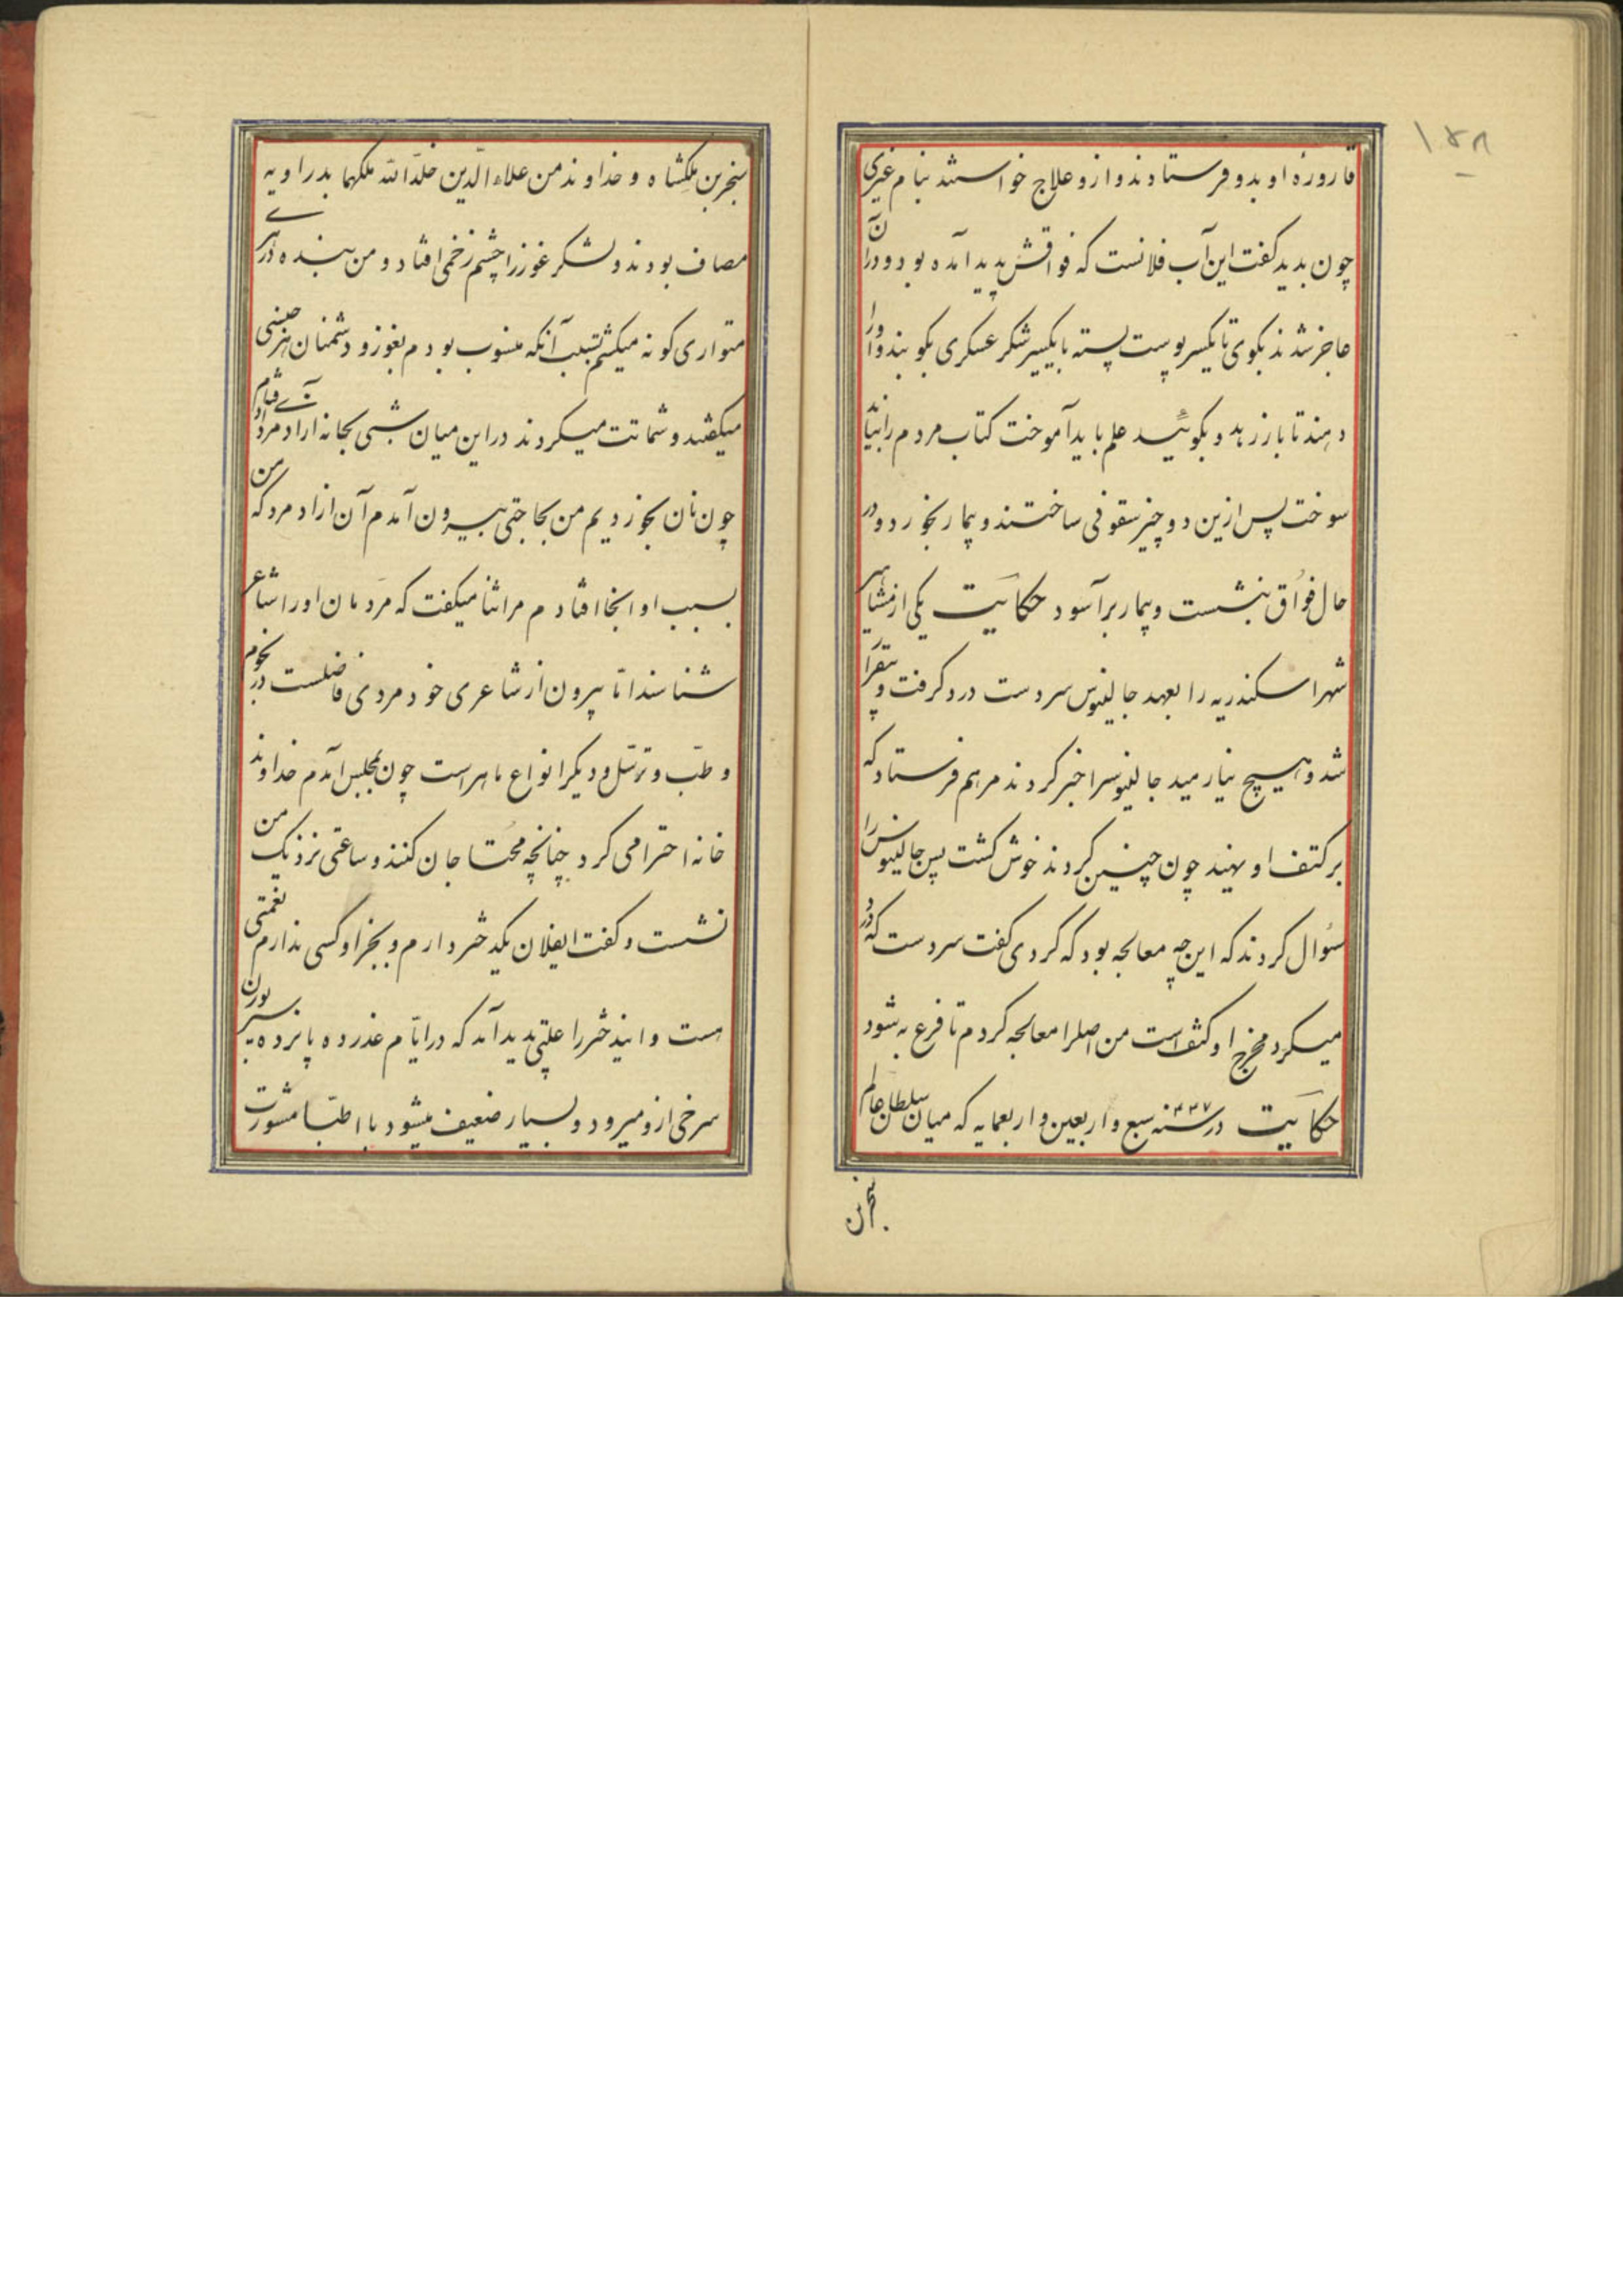 ١٥٨
قاروره او بدو فرستادند و ازو علاج خواستند بنام غیری
چون بدید گفت این آب فلانست که فواقش پدید آمده بود و در آن
عاجز شدند بکوی تا یکسیر پوست پسته با یکسیر شکر عسکری بکوبند و او را
دهند تا باز رهد و بگوئید علم باید آموخت کتاب مردم را نباید
سوخت پس ازین دو چیز سفوفی ساختند و بیمار بخورد و در
حال فواق بنشست و بیمار برآسود حکایت یکی از مشاهیر
شهر اسکندریه را بعهد جالینوس سر دست درد گرفت و بیقرار
شد و هیچ نیارمید جالینوسرا خبر کردند مرهم فرستاد که
بر کتف او نهید چون چنین کردند خوش گشت پس جالینوس را
سؤال کردند که این چه معالجه بود که کردی گفت سر دست که درد
میکرد مخرج او کتف است من اصلرا معالجه کردم تا فرع به شود
حکایت در سنه ۴۴۷ سبع و اربعین و اربعمایه که میان سلطان عالم
سنجر بن
سنجر بن ملکشاه و خداوند من علاء الدین خلد الله ملکهما بدر اوبه
مصاف بود و لشکر غور را چشم زخمی افتاد و من بنده در هری
متواری گونه میگشتم بسبب آنکه منسوب بودم بغور و دشمنان هر جنسی
میگفتند و شماتت میکردند در این میان شبی بخانه آزاد مردی
چون نان بخوردیم من بحاجتی بیرون آمدم آن ازاد مرد که من
بسبب او انجا افتادم مرا ثنا میگفت که مردمان او را شاعر
شناسند اما بیرون از شاعری خود مردی فاضلست در نجوم
و طب و ترسل و دیگر انواع ماهر است چون بمجلس آمدم خداوند
خانه احترامی کرد چنانچه محتاجان کنند و ساعتی نزدیک من
نشست و گفت ایفلان یکدختر دارم و بجز او کسی ندارم نعمتی
هست و اینذختر را علتی پدید آمد که در ایام عذر ده پانزده سیر
سرخی از و میرود و بسیار ضعیف میشود با اطبا مشورت